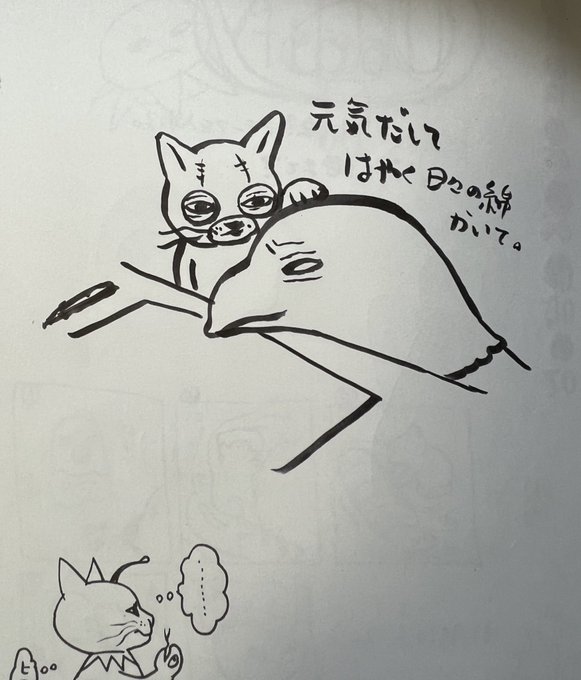 元気だして
はやく日々の綿
かいて。
………
ヒ